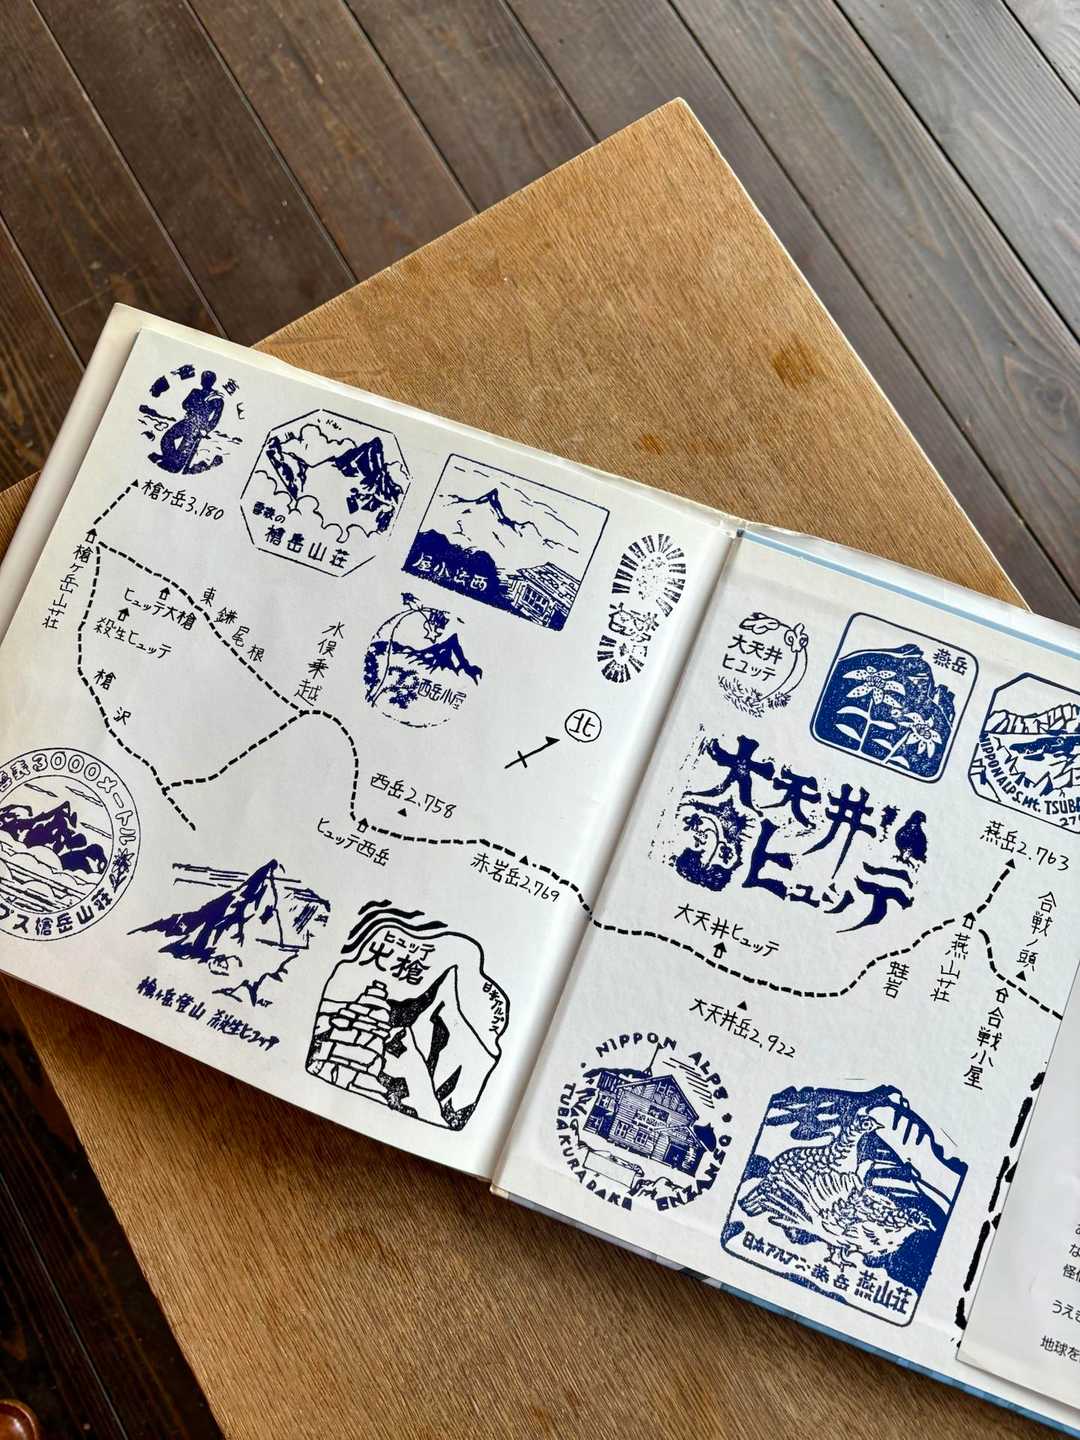 槍ヶ岳3,180
雲表の
槍岳山荘
西岳小屋
槍ヶ岳山荘
ヒュッテ大槍
殺生ヒュッテ
東鎌尾根
水俣乗越
西岳小屋
槍沢
北
西岳2,758
ヒュッテ西岳
赤岩岳2,769
3000メートル
槍岳山荘
槍ヶ岳登山 殺生ヒュッテ
ヒュッテ
大槍
日本アルプス
大天井
ヒュッテ
燕岳
NIPPON ALPS. Mt. TSUBA
大天井
ヒュッテ
燕岳2,763
合戦ノ頭
大天井ヒュッテ
蛙岩
燕山荘
合戦小屋
大天井岳2,922
NIPPON ALPS
TUBAKURADAKE
ENZANSO
日本アルプス・燕岳 燕山荘
うえき
地球を